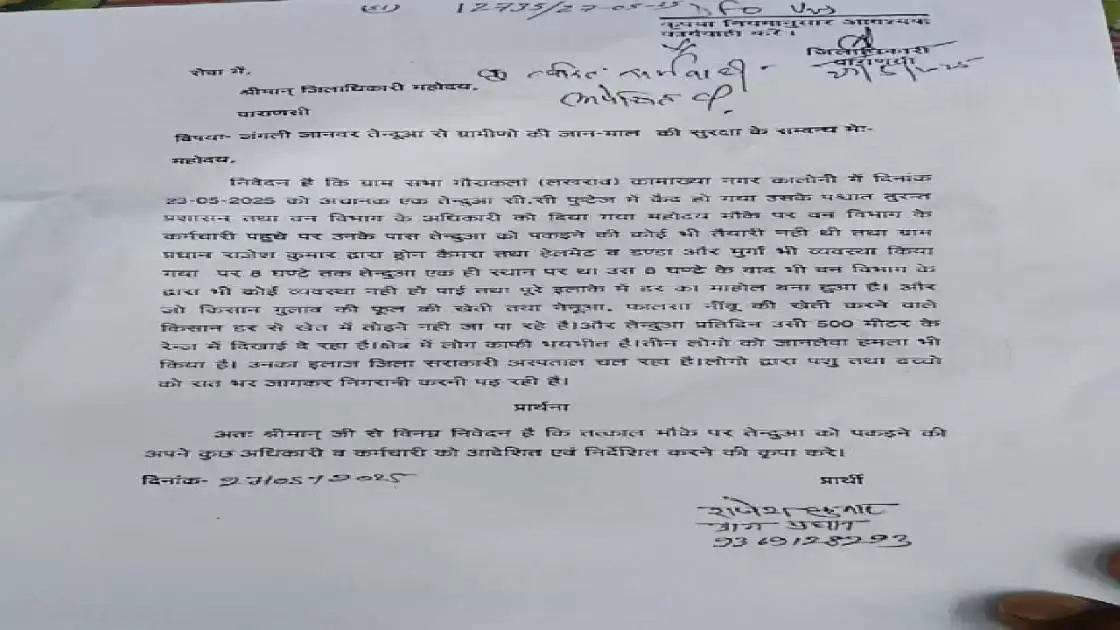 12735/27-05-25 DFO
कृपया नियमानुसार आवश्यक
कार्यवाही करें।
जिलाधिकारी
वाराणसी
सेवा में,
त्वरित कार्यवाही
अपेक्षित
श्रीमान् जिलाधिकारी महोदय,
वाराणसी
विषयः- जंगली जानवर तेन्दूआ से ग्रामीणो की जान-माल की सुरक्षा के सम्बन्ध मेः-
महोदय,
निवेदन है कि ग्राम सभा गौराकलां (लखराव) कामाख्या नगर कालोनी में दिनांक
23-05-2025 को अचानक एक तेन्दुआ सी.सी फुटेज में कैद हो गया उसके पश्चात तुरन्त
प्रशासन तथा वन विभाग के अधिकारी को दिया गया महोदय मौके पर वन विभाग के
कर्मचारी पहुचे पर उनके पास तेन्दुआ को पकड़ने की कोई भी तैयारी नही थी तथा ग्राम
प्रधान राजेश कुमार द्वारा ड्रोन कैमरा तथा हेलमेट व डण्डा और मुर्गा भी व्यवस्था किया
गया पर 8 घण्टे तक तेन्दुआ एक ही स्थान पर था। उस 8 घण्टे के बाद भी वन विभाग के
द्वारा भी कोई व्यवस्था नही हो पाई तथा पूरे इलाके में डर का माहोल बना हुआ है। और
जो किसान गुलाव की फूल की खेती तथा नेनूआ, फालसा नींबू की खेती करने वाले
किसान डर से खेत में तोड़ने नही जा पा रहे है।और तेन्दुआ प्रतिदिन उसी 500 मीटर के
रेन्ज में दिखाई दे रहा है।क्षेत्र में लोग काफी भयभीत है।तीन लोगो को जानलेवा हमला भी
किया है। उनका इलाज जिला सराकारी अस्पताल चल रहा है।लोगो द्वारा पशु तथा बच्चो
को रात भर जागकर निगरानी करनी पड़ रही है।
प्रार्थना
अतः श्रीमान् जी से विनम्र निवेदन है कि तत्काल मौके पर तेन्दुआ को पकड़ने की
अपने कुछ अधिकारी व कर्मचारी को आदेशित एवं निर्देशित करने की कृपा करे।
दिनांक- 27/05/2025
प्रार्थी
राजेश कुमार
ग्राम प्रधान